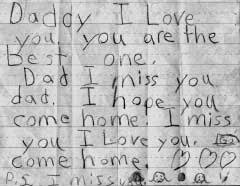 Daddy I Love
you, you are the
Best one.
Dad I miss you
dad. I hope you
come home! I miss
you I Love you.
come home!
P.S I miss